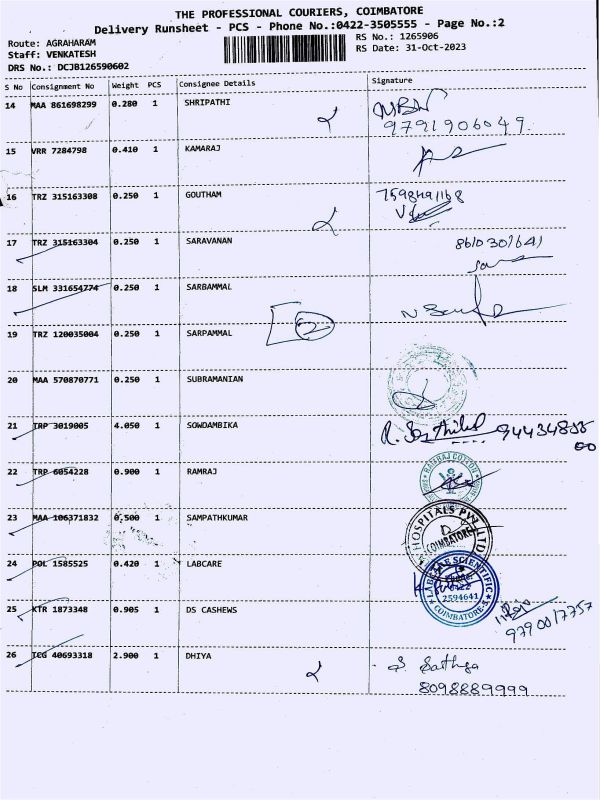 THE PROFESSIONAL COURIERS, COIMBATORE
Delivery Runsheet - PCS - Phone No.:0422-3505555 - Page No.:2
Route: AGRAHARAM
Staff: VENKATESH
DRS No.: DCJB126590602
RS No.: 1265906
RS Date: 31-Oct-2023
S No Consignment No Weight PCS Consignee Details Signature
14 MAA 861698299 0.280 1 SHRIPATHI
9791906049
15 VRR 7284798 0.410 1 KAMARAJ
16 TRZ 315163308 0.250 1 GOUTHAM
17 TRZ 315163304 0.250 1 SARAVANAN 8610307641
18 SLM 331654774 0.250 1 SARBAMMAL
19 TRZ 120035004 0.250 1 SARPAMMAL
20 MAA 570870771 0.250 1 SUBRAMANIAN
21 TRP 3019005 4.050 1 SOWDAMBIKA
22 TRP 6054228 0.900 1 RAMRAJ RAMRAJ COTTON
23 MAA 106371832 0.500 1 SAMPATHKUMAR HOSPITALS PVT LTD COIMBATORE
24 POL 1585525 0.420 1 LABCARE SCIENTIFIC
2594641 COIMBATORE
25 KTR 1873348 0.905 1 DS CASHEWS
9790017757
26 TCG 40693318 2.900 1 DHIYA S. Sathya
8098889999